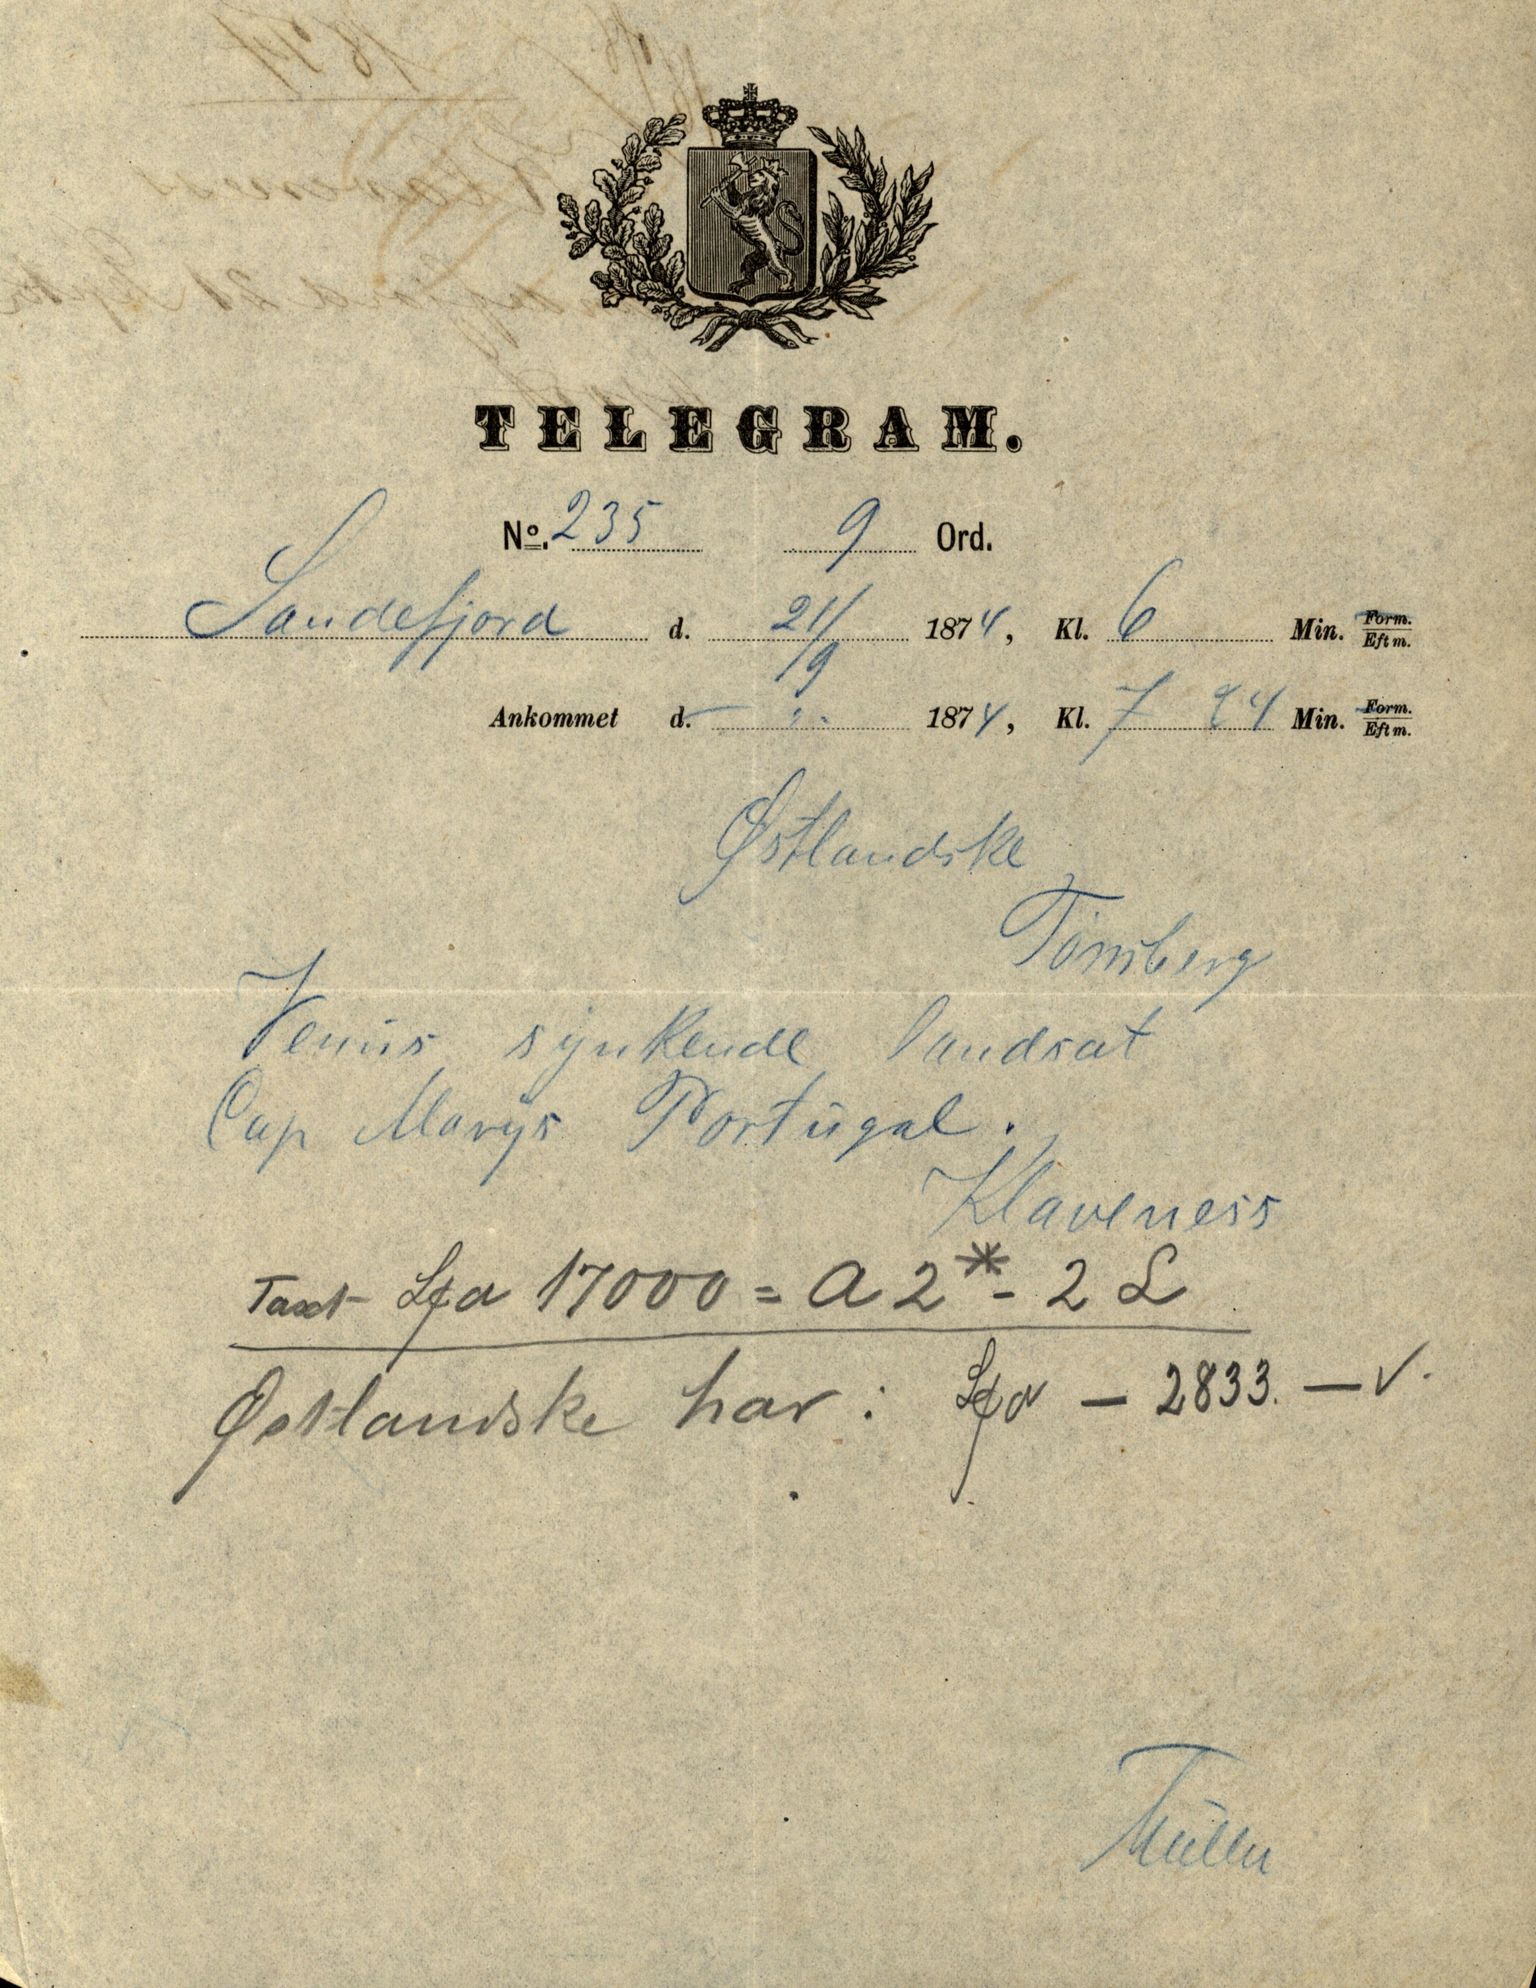 TELEGRAM.
No. 235 9 Ord.
Sandefjord d. 21/9 1874, Kl. 6 Min. Form. Eftm.
Ankommet d. — " 1874, Kl. 7 24 Min. Form. Eftm.
Østlandske
Tönsberg
Venus synkende landsat
Cap Marys Portugal.
Klaveness
Taxt Spd 17000 = A 2 * - 2 L
Østlandske har: Spd — 2833. — ✓.
Müller